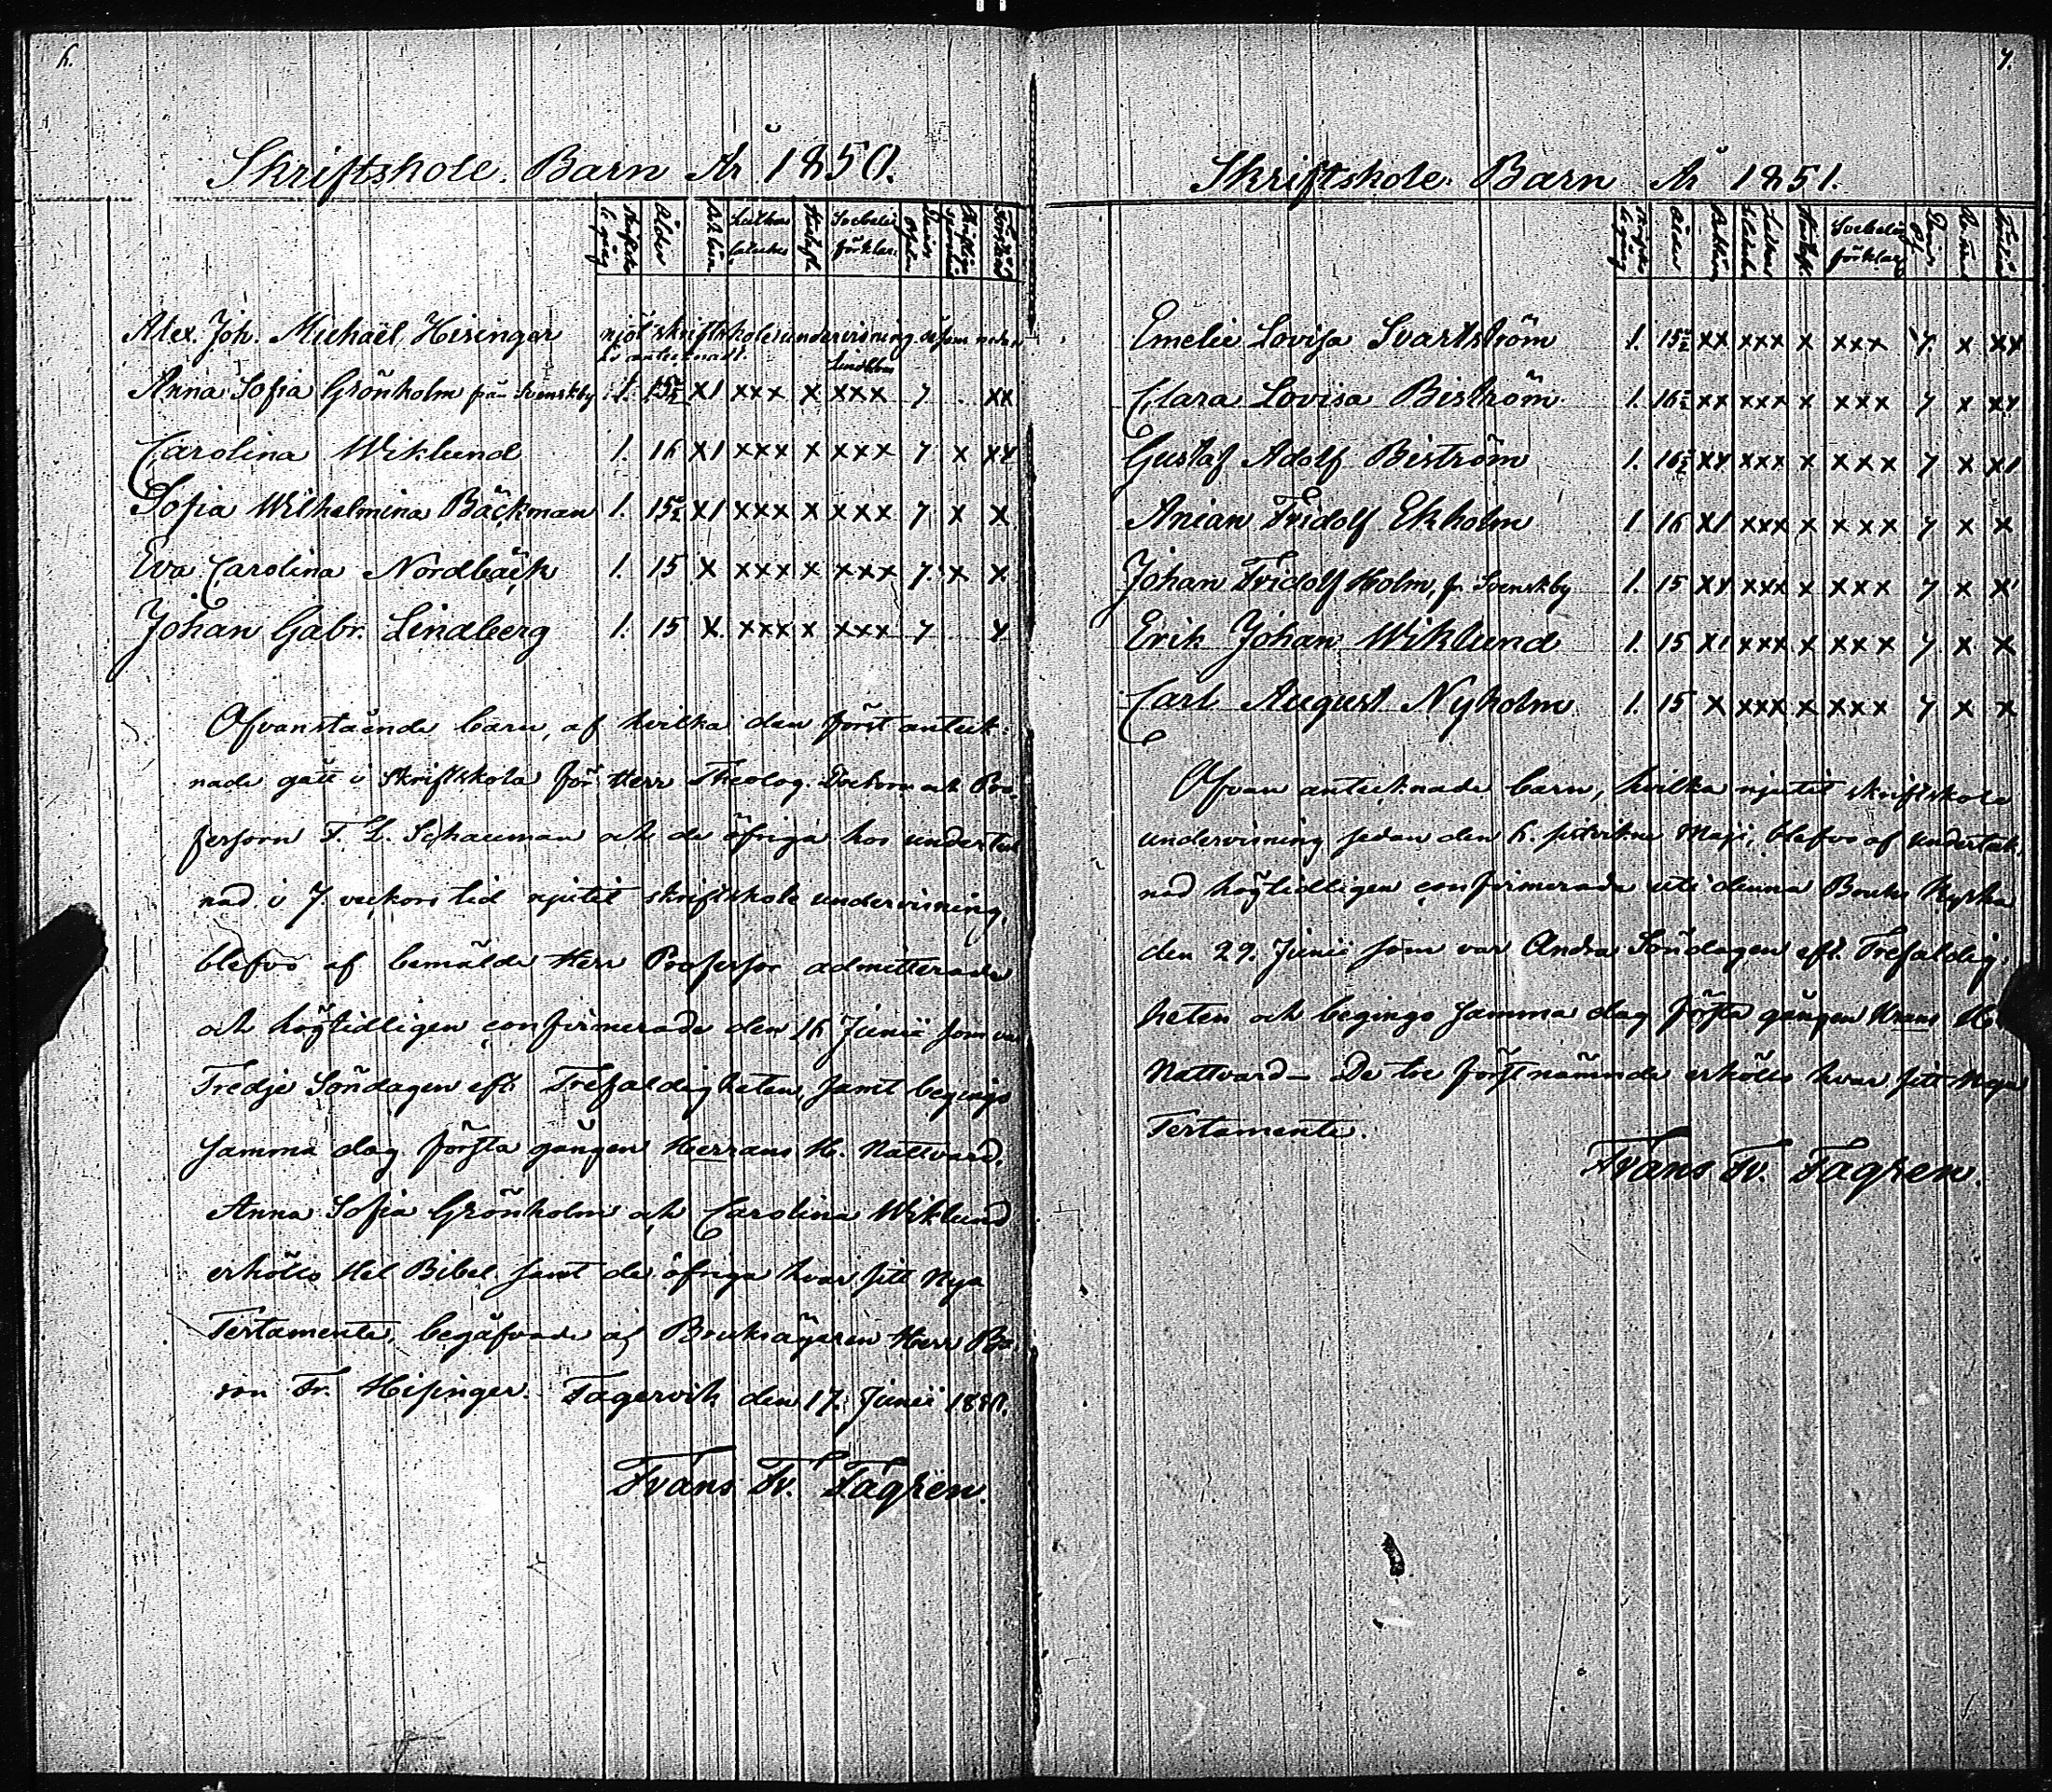 6.
Skriftskole. Barn År 1850.
Ålder
Förstånd
Alex. Joh. Michaël Hisinger njöt skriftskoleundervisning såsom nedan
är antecknadt.
Anna Sofia Grönholm från Svenskby 1. 15½ x1 xxx x xxx 7 xx
Carolina Wiklund 1. 16 x1 xxx x xxx 7 x xx
Sofia Wilhelmina Bäckman 1. 15½ x1 xxx x xxx 7 x x
Eva Carolina Nordbäck 1. 15 x xxx x xxx 7. x x
Johan Gabr. Lindberg 1. 15 x. xxx x xxx 7 x
Ofvanstående barn, af hvilka den först anteck:
nade gått i Skriftskola för Herr Theolog. Doctorn och Pro,
fessorn F. L. Schauman och de öfriga hos underteck
nad i 7. veckors tid njutit skriftskole undervisning,
blefvo af bemälde Herr Professor admitterade
och högtidligen confirmerade den 16 Junii som var
Tredje Söndagen eft. Trefaldigheten, samt begingo
samma dag första gången Herrans H. Nattvard.
Anna Sofia Grönholm och Carolina Wiklund
erhöllo Hel Bibel samt de öfriga hvar sitt Nya
Testamente, begåfvade af Bruksägaren Herr Ba,
ron Fr. Hisinger. Tagervik den 17. Junii 1850.
Frans Fr. Fagrén.
7.
Skriftskole. Barn År 1851.
Ålder
Svebelii
förklar
Emelie Lovisa Svartström 1. 15½ xx xxx x xxx 7. x xx
Clara Lovisa Biström 1. 16½ xx xxx x xxx 7 x xx
Gustaf Adolf Biström 1. 16½ xx xxx x xxx 7 x x1
Anian Fridolf Ekholm 1 16 x1 xxx x xxx 7 x x
Johan Fridolf Holm, fr. Svenskby 1. 15 xx xxx x xxx 7 x x
Erik Johan Wiklund 1. 15 x1 xxx x xxx 7. x x
Carl August Nyholm 1. 15 x xxx x xxx 7 x x
Ofvan antecknade barn, hvilka njutit skriftskole
undervisning sedan den 6. sistvikne Maji, blefvo af underteck,
nad högtidligen confirmerade uti denna Bruks Kyrka
den 29. Junii som var Andra Söndagen eft. Trefaldig:
heten och begingo samma dag första gången Hrans H.
Nattvard – De tre förstnämnde erhöllo hvar sitt Nya
Testamente.
Frans Fr. Fagrén.